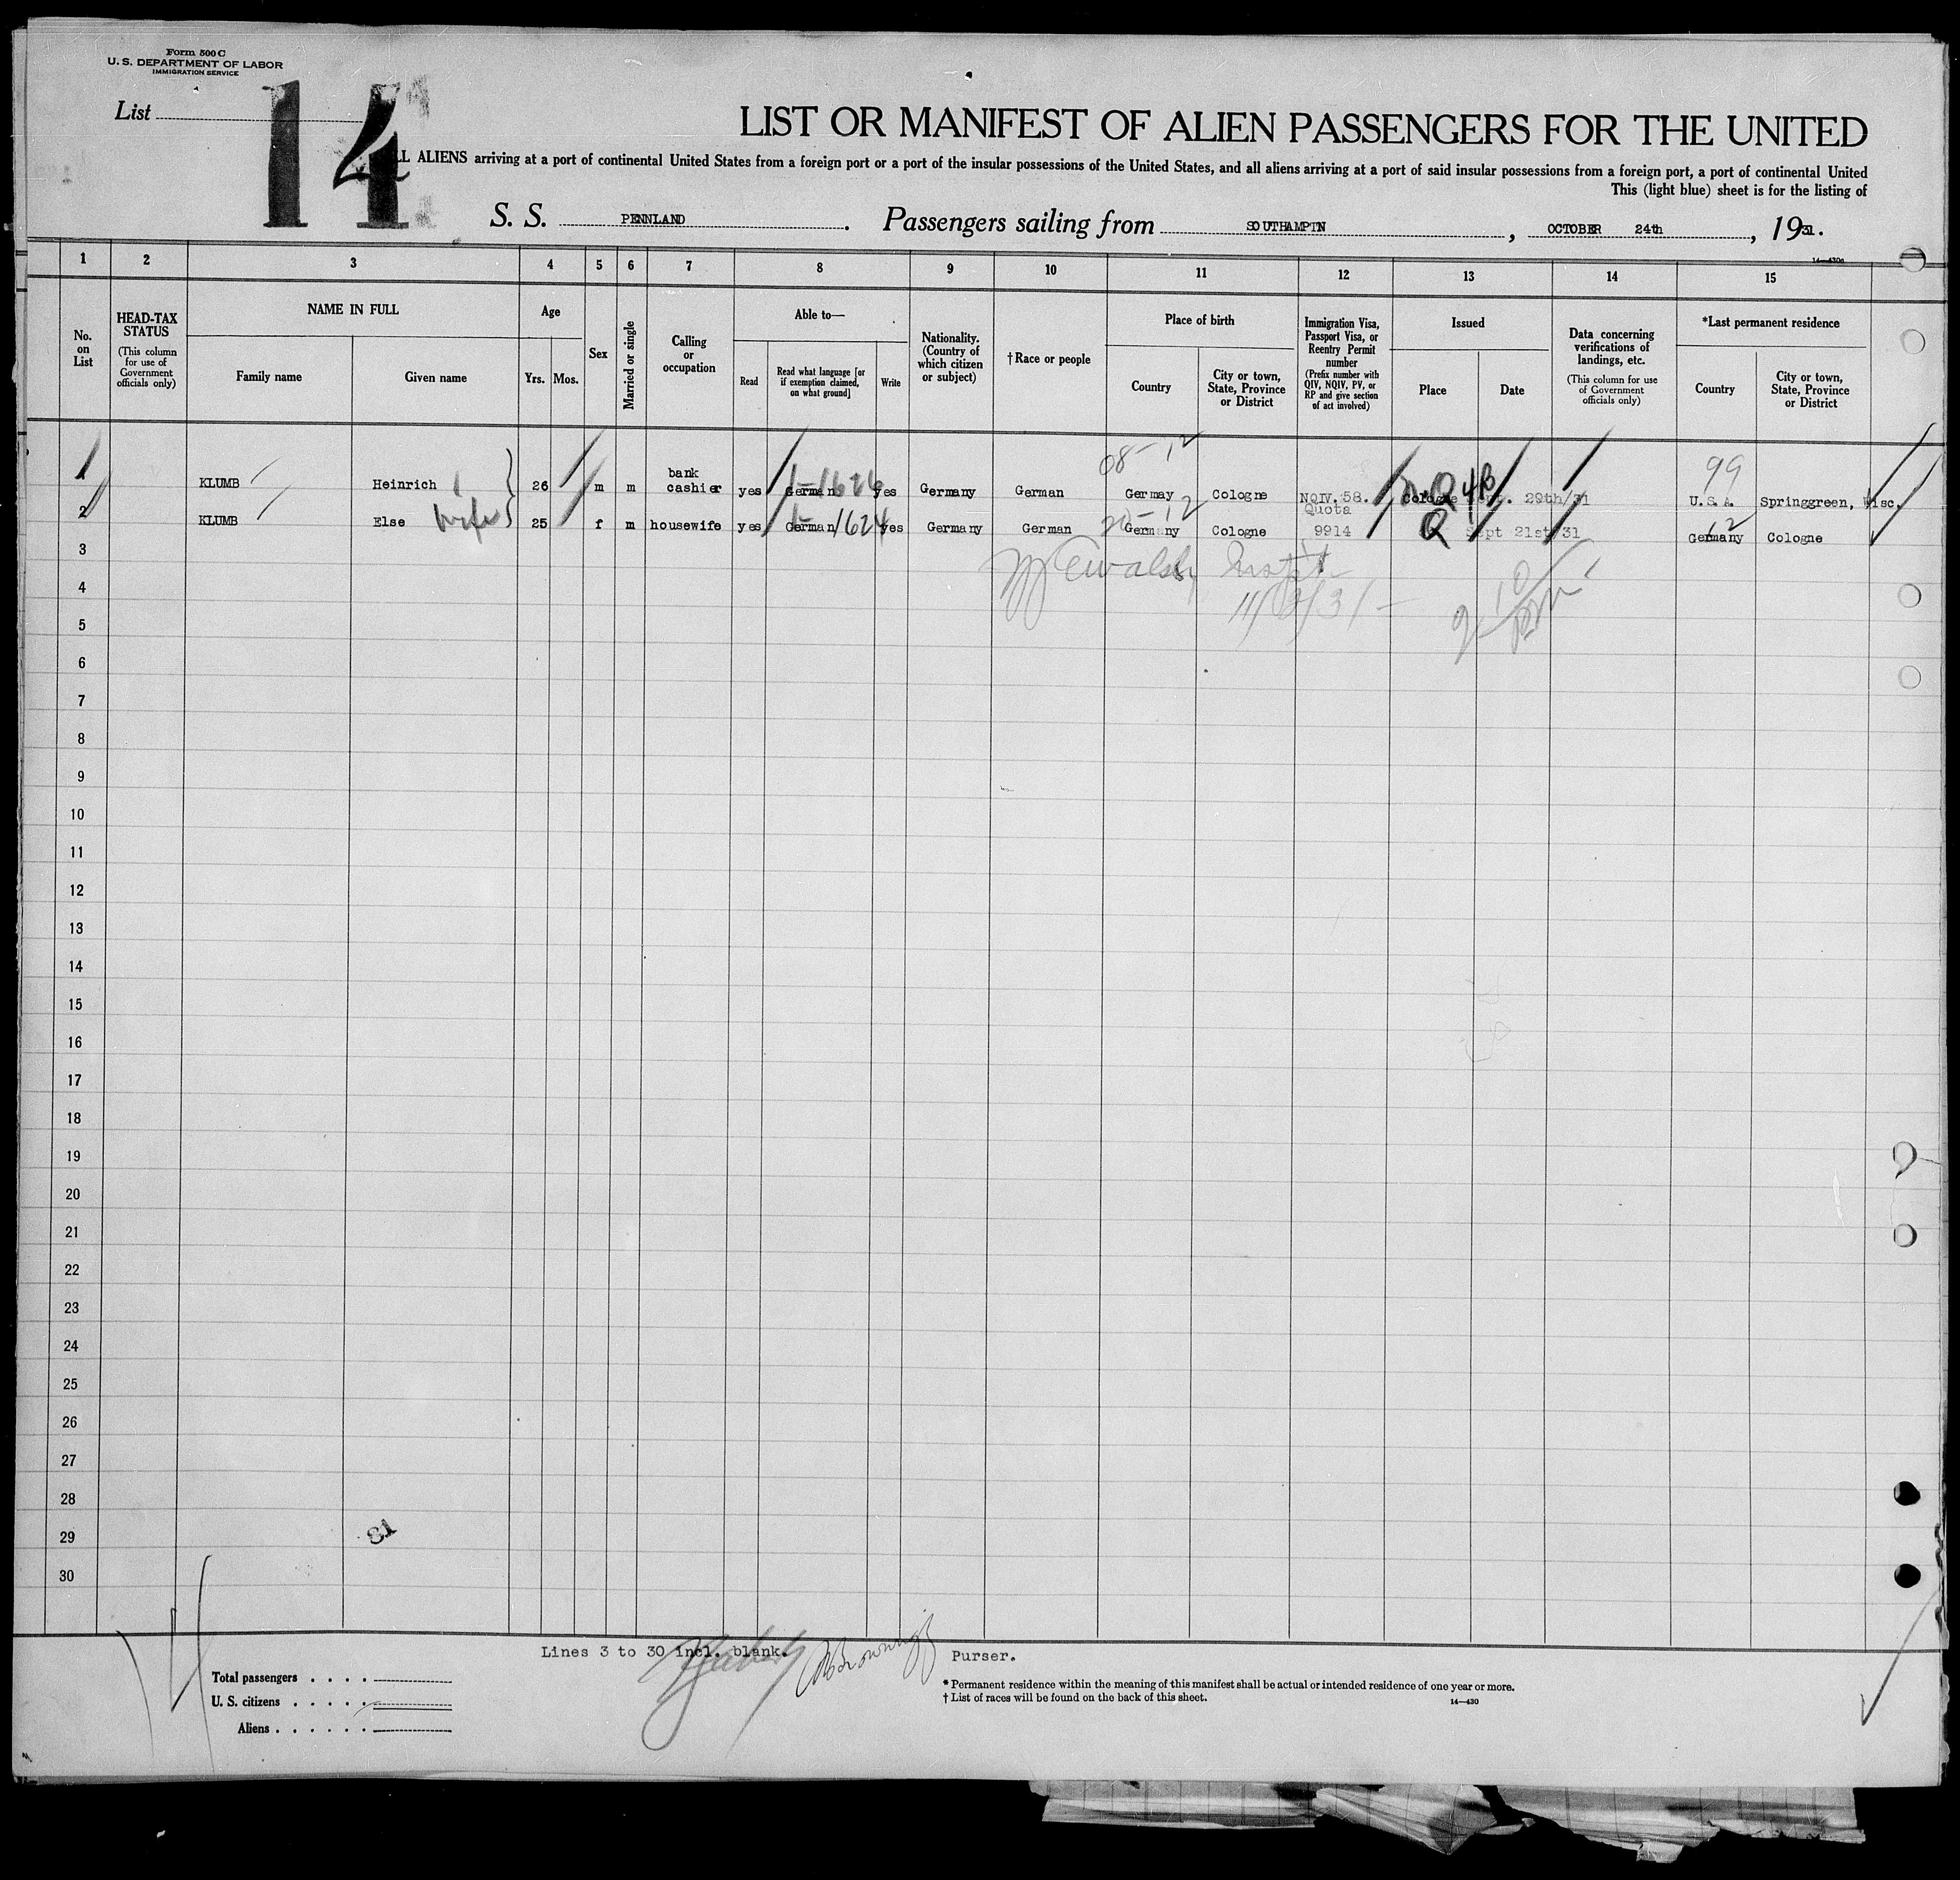 Form 500 C
U. S. DEPARTMENT OF LABOR
IMMIGRATION SERVICE
List 14
LIST OR MANIFEST OF ALIEN PASSENGERS FOR THE UNITED
LL ALIENS arriving at a port of continental United States from a foreign port or a port of the insular possessions of the United States, and all aliens arriving at a port of said insular possessions from a foreign port, a port of continental United
This (light blue) sheet is for the listing of
S. S. PENNLAND. Passengers sailing from SOUTHAMPTN, OCTOBER 24th, 1931.
14—430a
1 2 3 4 5 6 7 8 9 10 11 12 13 14 15
No. on List
HEAD-TAX STATUS
(This column for use of Government officials only)
NAME IN FULL
Family name
Given name
Age
Yrs. Mos.
Sex
Married or single
Calling or occupation
Able to—
Read
Read what language [or if exemption claimed, on what ground]
Write
Nationality. (Country of which citizen or subject)
†Race or people
Place of birth
Country
City or town, State, Province or District
Immigration Visa, Passport Visa, or Reentry Permit number
(Prefix number with QIV, NQIV, PV, or RP and give section of act involved)
Issued
Place
Date
Data concerning verifications of landings, etc.
(This column for use of Government officials only)
*Last permanent residence
Country
City or town, State, Province or District
08-12
99
1 KLUMB Heinrich 26 m m bank cashier yes German 1-1626 yes Germany German Germay Cologne NQIV. 58. Cologne N.Q 4B Sept. 29th/31 U.S.A. Springgreen, Wisc.
20-12
12
2 KLUMB Else wife 25 f m housewife yes German 1-1624 yes Germany German Germany Cologne Quota 9914 Q Sept 21st/31 Germany Cologne
3
11/3/31
4
5
6
7
8
9
10
11
12
13
14
15
16
17
18
19
20
21
22
23
24
25
26
27
28
29
31
30
Lines 3 to 30 incl. blank.
Purser.
Total passengers . . . .
U. S. citizens . . . . .
Aliens . . . . . .
* Permanent residence within the meaning of this manifest shall be actual or intended residence of one year or more.
† List of races will be found on the back of this sheet.
14—430